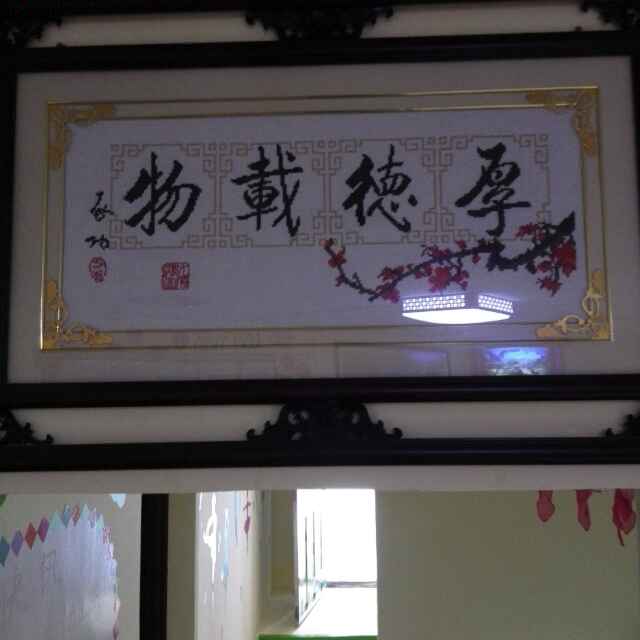 厚德載物
啟功